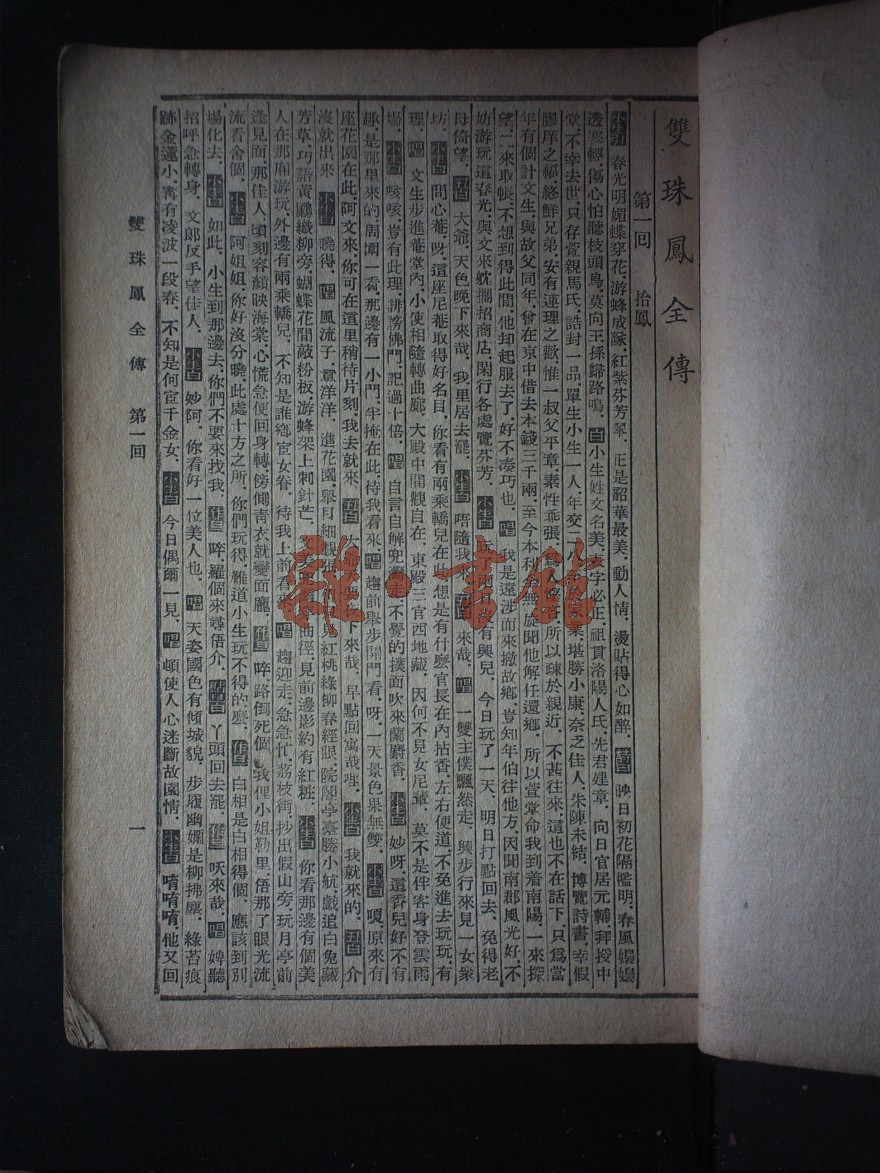 雙珠鳳全傳
第一回 拾鳳
小引 春光明媚蝶穿花，游蜂成隊，紅紫芬芳翠，正是韶華最美，動人情，漫貼得心如醉，映日初花隔檻明，春風嫋嫋
透寒輕，傷心怕聽枝頭鳥，莫向王孫歸路鳴，白小生姓文名美，表字必正，祖貫洛陽人氏，先君建章，向日官居元輔，拜授中
堂，不幸去世，只存萱親馬氏，誥封一品，單生小生一人，年交二八，家業堪勝小康，奈乏佳人，朱陳未結，博覽詩書，幸假
膠庠之幅，終鮮兄弟，安有連理之歡，惟一叔父平章，素性乖張，爲人，所以疎於親近，不甚往來，這也不在話下，只爲當
年有個計文生，與故父同年，曾在京中借去本錢三千兩，至今本利無，旋聞他解任還鄉，所以萱堂命我到着南陽一來探
望，二來取帳，不想到得此間，他却起服去了，好不湊巧也，唱 我是遠涉而來撇故鄉，豈知年伯往他方，因聞南郡風光好，不
妨游玩這春光，與文來躭擱招商店，閑行各處覽芬芳，小白 有興兒，今日玩了一天，明日打點回去，免得老
母倚望，丑白 大爺，天色晚下來哉，我里居去罷，小生白 唔隨我來，丑白 來哉，唱 一雙主僕飄然走，興步行來見一女衆
坊，小生白 問心菴，呀，這座尼菴取得好名目，你看有兩乘轎兒在此，想是有什麽官長在內拈香，左右便道，不免進去玩玩，有
理，唱 文生步進菴堂內，小使相隨轉曲廊，大殿中間觀自在，東殿三官西地藏，因何不見女尼輩，莫不是伴客身登雲雨
場，小生白 咳咳，豈有此理，誹謗佛門，記過十倍，唱 自言自解兜走，不覺的撲面吹來蘭麝香，小生白 妙呀，這香兒好不有
趣，是那里來的，周圍一看，那邊有一小門，半掩在此，待我看來，唱 趨前舉步開門看，呀，一天景色果無雙，小生白 嗄，原來有
座花園在此，阿文來，你可在這里稍待片刻，我去就來，丑白 大下來哉，早點回寓哉𠲎，小生白 我就來的，丑白 介
沒就出來，小白 曉得，唱 風流子，意洋洋，進花園，舉目細見紅桃綠柳春經眼，院閣亭臺勝小航，戲追白兔藏
芳草，巧語黃鸝織柳旁，蝴蝶花間敲粉板，游蜂架上刺針芒，曲徑，見前邊影約有紅粧，小生白 你看那邊有個美
人在那廂游玩，外邊有兩乘轎兒，不知是誰鄉宦女眷，待我上前看來，唱 趨迎走，急急忙，荔枝街，抄出假山旁，玩月亭前
逢見面，那佳人，頃刻容顔映海棠，心慌急便回身轉，傍側靑衣就變面龐，白 啐，路倒死個，我俚小姐勒里，俉那了眼光流
流看舍個，小生白 阿姐姐，你好沒分曉，此處十方之所，你們玩得，難道小生玩不得的麽，白 白相是白相得個，應該到別
場化去，小生白 如此，小生到那邊去，你們不要來找我，白 啐，羅個來尋俉介，白 丫頭回去罷，白 㕭來哉，唱 婢聽
招呼急轉身，文郎反手望佳人，小生白 妙阿，你看好一位美人也，唱 天姿國色有傾城貌，步履幽嫺是柳拂塵，綠苔痕
跡金蓮小，寗有凌波一段春，不知是何宦千金女，小生白 今日偶爾一見，唱 頓使人心迷斷故園情，小生白 唷唷唷，他又回
雙珠鳳全傳 第一回 一
雜·書館